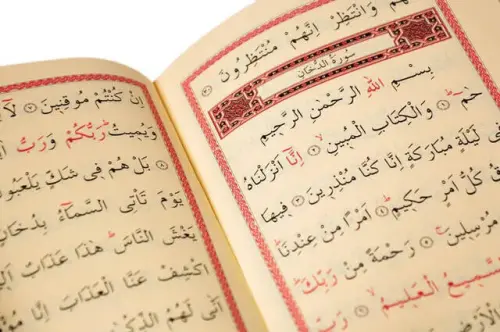 وَانْتَظِرْ اِنَّهُمْ مُنْتَظِرُونَ
سُورَةُ الدُّخَانِ
بِسْمِ اللّٰهِ الرَّحْمٰنِ الرَّحِيمِ
حٰمٓ وَالْكِتَابِ الْمُبِينِ اِنَّٓا اَنْزَلْنَاهُ
لَيْلَةٍ مُبَارَكَةٍ اِنَّا كُنَّا مُنْذِرِينَ فِيهَا
كُلُّ اَمْرٍ حَكِيمٍ اَمْرًا مِنْ عِنْدِنَا
مُرْسِلِينَ رَحْمَةً مِنْ رَبِّكَ
السَّمِيعُ الْعَلِيمُ
اِنْ كُنْتُمْ مُوقِنِينَ لَٓا
وَيُمِيتُ رَبُّكُمْ وَرَبُّ
بَلْ هُمْ فِى شَكٍّ يَلْعَبُونَ
يَوْمَ تَأْتِى السَّمَٓاءُ بِدُخَانٍ
يَغْشَى النَّاسَ هٰذَا عَذَابٌ
اكْشِفْ عَنَّا الْعَذَابَ اِنَّا
اَنّٰى لَهُمُ